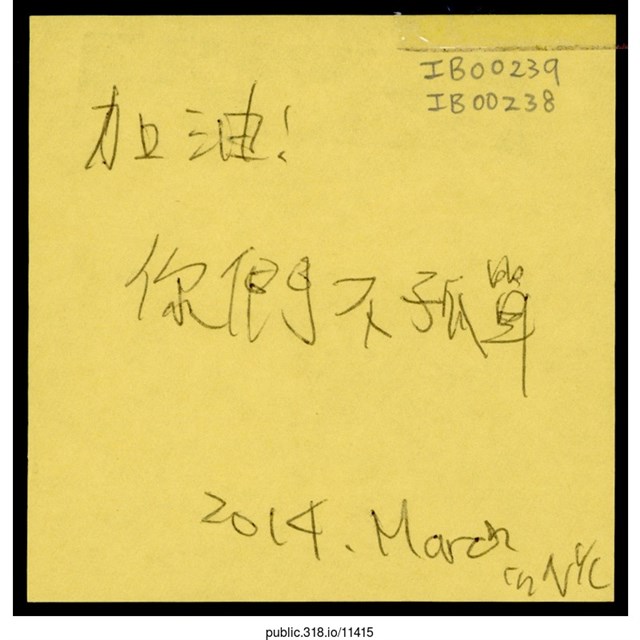 IB00239
IB00238
加油!
你們不孤單
2014. March
in NYC
public.318.io/11415